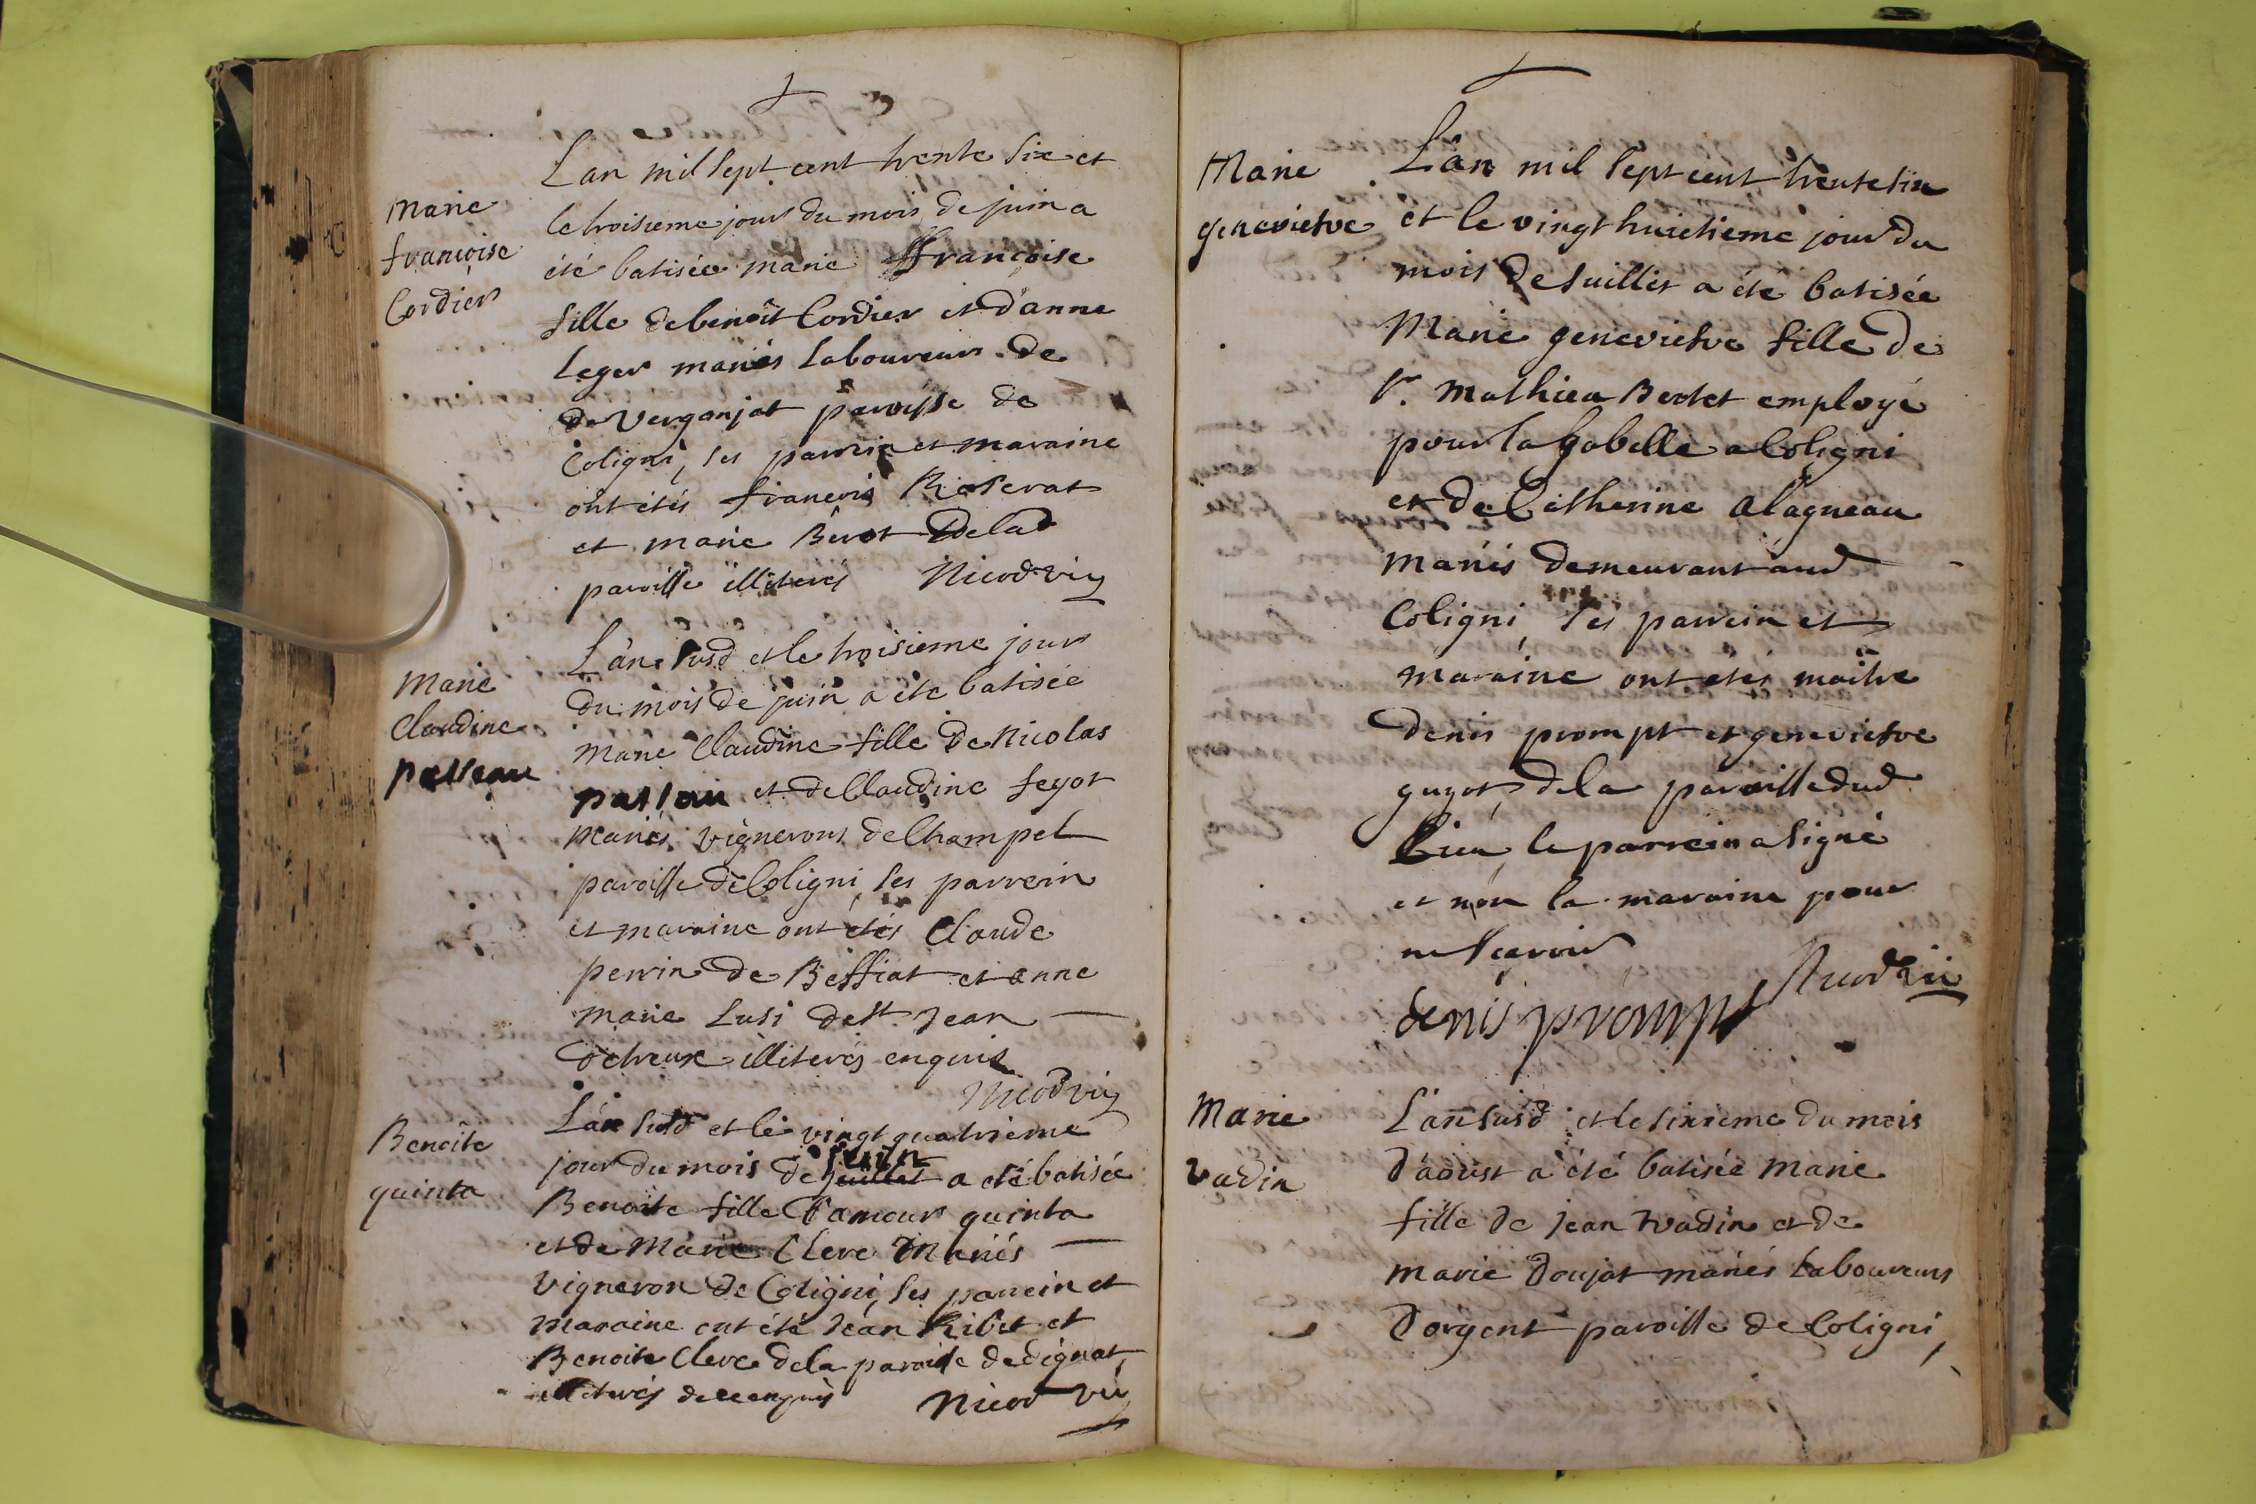 Marie
françoise
Cordier
Lan mil sept cent trente six et
le troisieme jour du mois de juin a
été batisée marie ffrançoise
fille de benoît Cordier et d'anne
leger mariés laboureurs de
de Verganjat paroisse de
Coligni, ses parrein et maraine
ont étés françois Roserat
et marie Birot de lad
paroisse illiterés Nicod vic
Marie
Claudine
passeau
L'an susd et le troisieme jour
du mois de juin a été batisée
marie Claudine fille de Nicolas
et de Claudine feyot
mariés vignerons de Champel
paroisse de Coligni, ses parrein
et maraine ont étés Claude
perrin de Beffiat et anne
marie Lusi de st. Jean
detreux illiterés enquis
Nicod vic
Benoîte
quinta
L'an susd et le vingt quatrieme
jour du mois de juillet juin a eté batisée
Benoite fille l'amour quinta
et de Marie Clerc Mariés
vigneron de Coligni, ses parrein et
maraine ont été Jean Ribet et
Benoite Clerc de la paroisse de dignat
illiterés de ce enquis Nicod vic
Marie
genevietve
L'an mil sept cent trente six
et le vingt huictieme jour du
mois de Juillet a été batisée
Marie genevietve fille de
sr. Mathieu Bertet employé
pour la gabelle a Coligni
et de Catherine alagneau
mariés demeurant aud
Coligni, ses parrein et
maraine ont etés maître
denis prompt et genevietve
guyot, de la paroisse dud
Lieu le parrein a signé
et non la maraine pour
ne sçavoir
denis prompt Nicod vic
Marie
vadin
L'an susd et le sixieme du mois
d'aoust a été batisée Marie
fille de jean vadin et de
marie doujat mariés Laboureurs
d'orgent paroisse de Coligni,